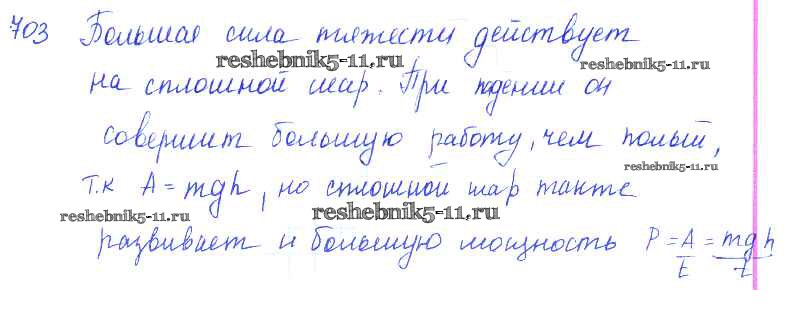 703 Большая сила тяжести действует
reshebnik5-11.ru reshebnik5-11.ru
на сплошной шар. При падении он
совершит большую работу, чем полый,
reshebnik5-11.ru
т.к A = mgh, но сплошной шар также
reshebnik5-11.ru reshebnik5-11.ru
развивает и большую мощность P = A/t = mgh/t